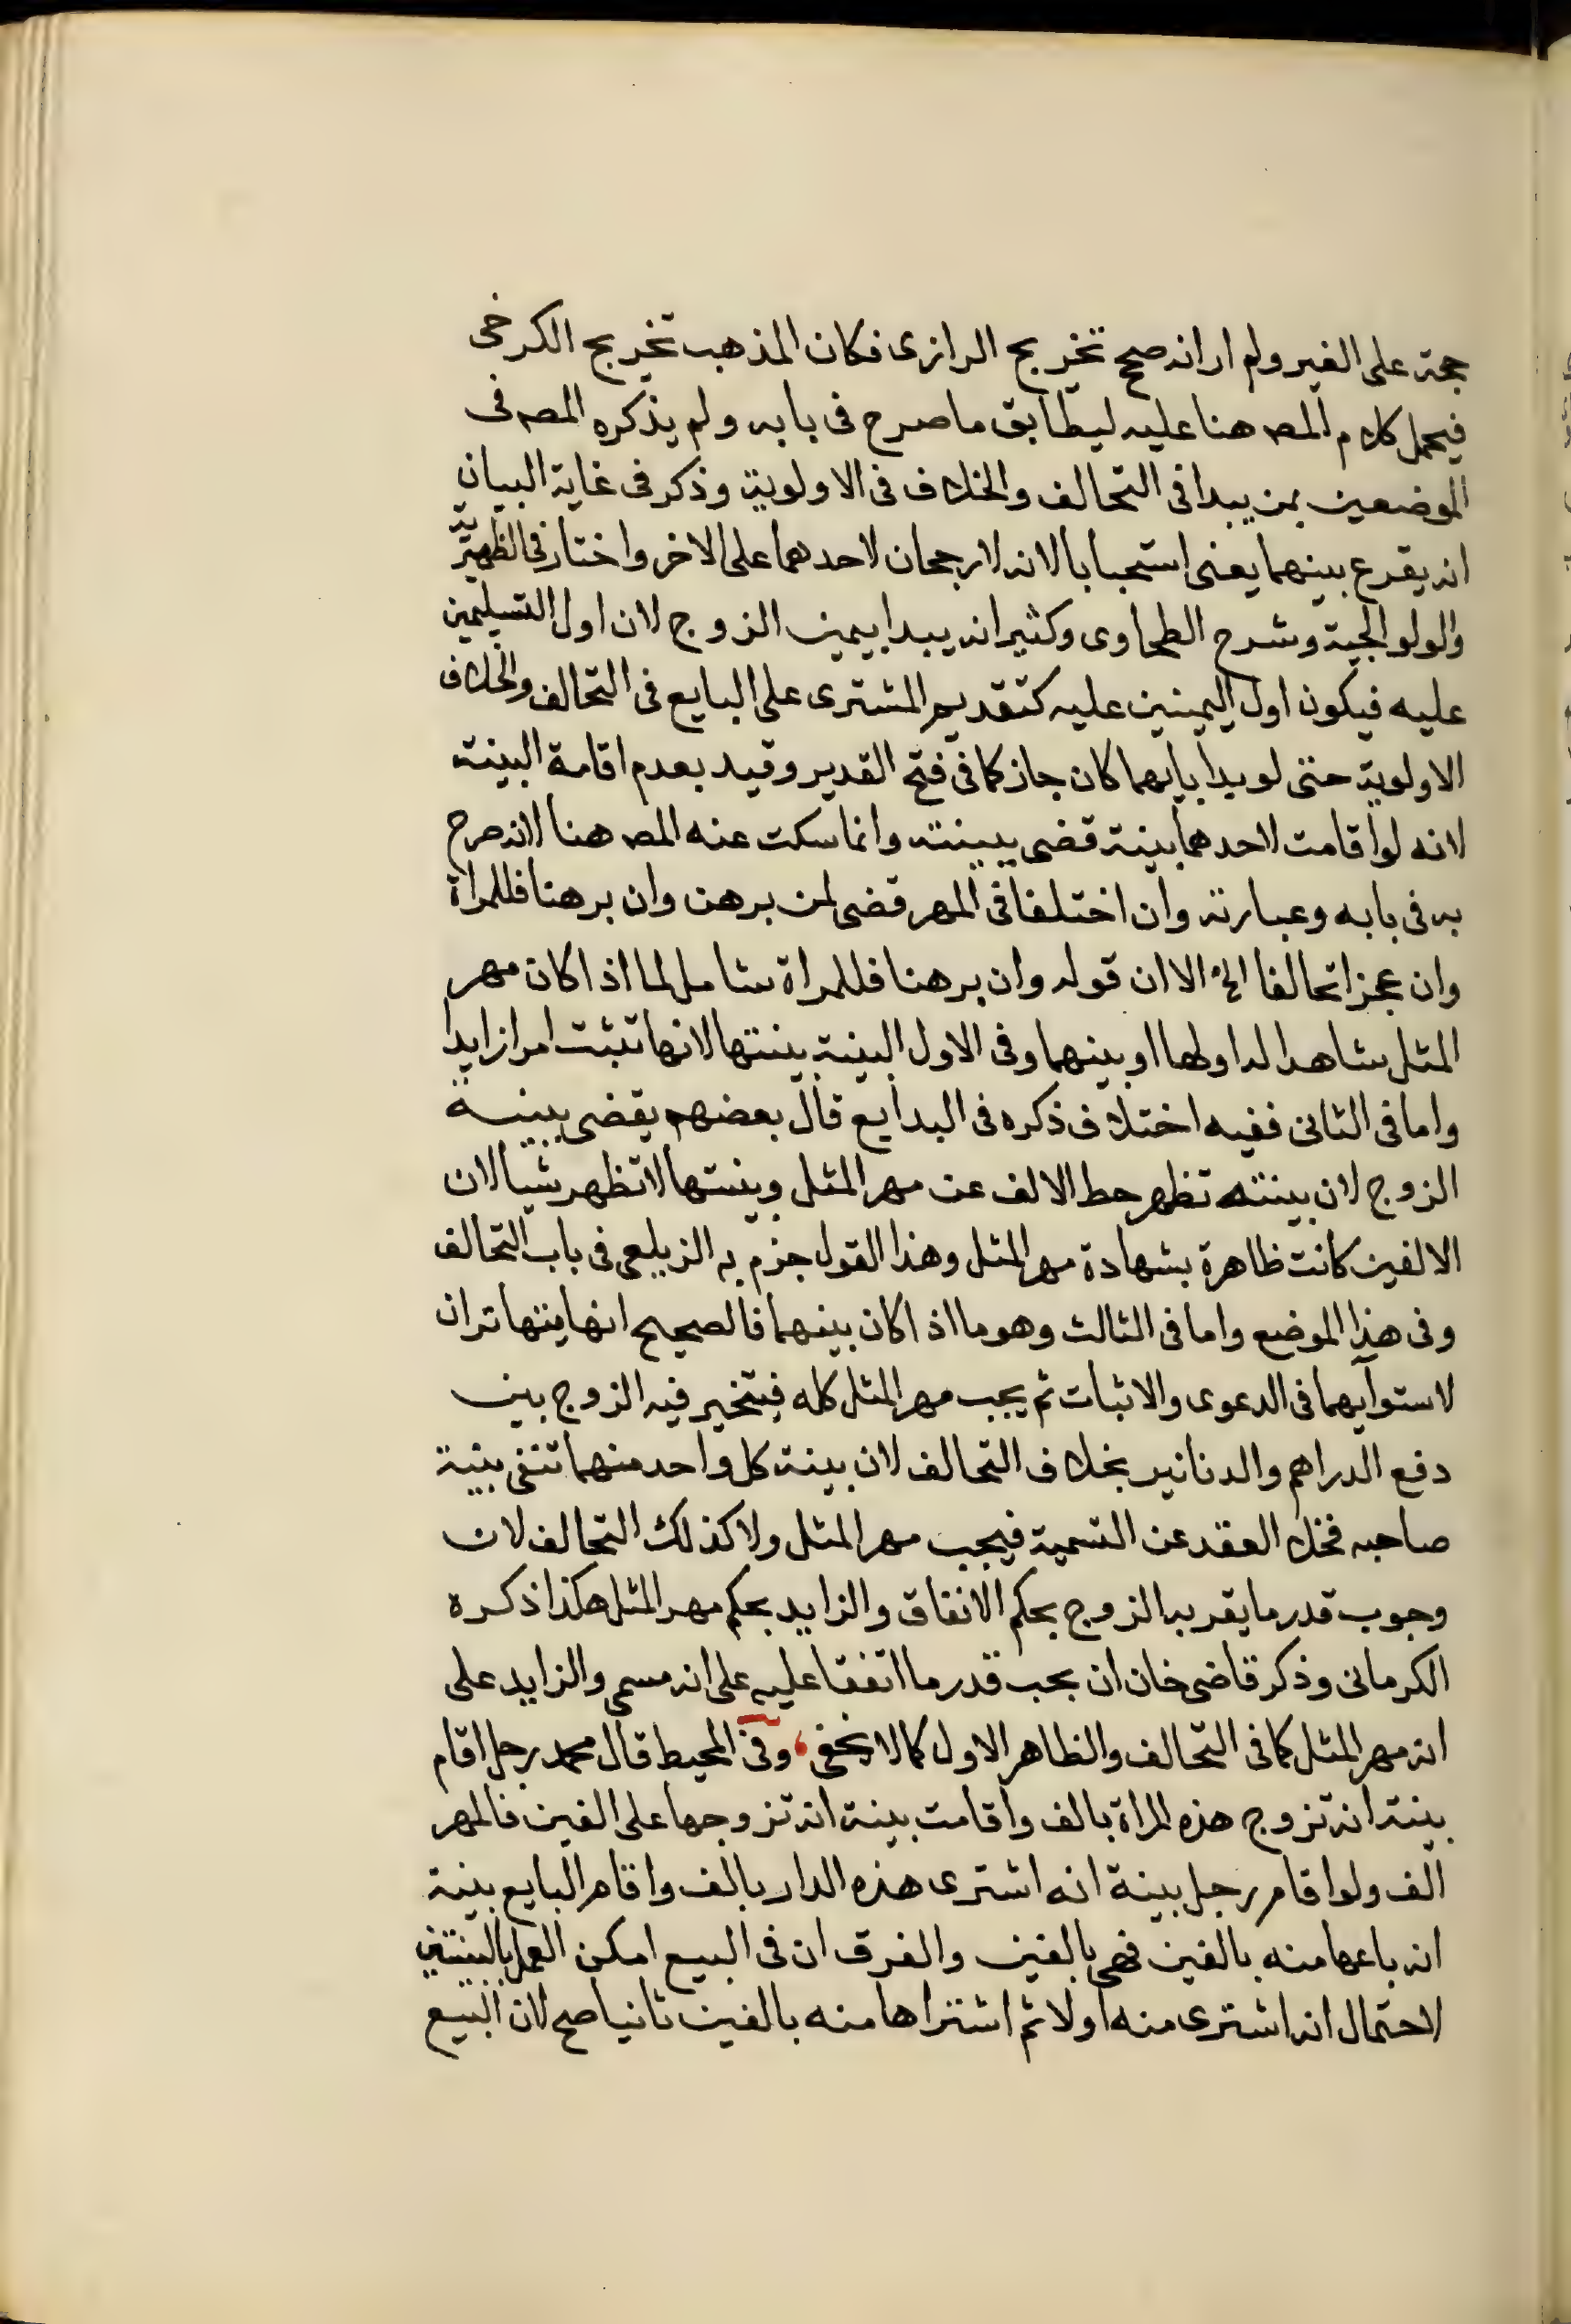 حجة على الغير ولم ار انه صحح تخريج الرازى فكان المذهب تخريج الكرخى
فيحمل كلام المص هنا عليه ليطابق ما صرح فى بابه ولم يذكره المص فى
الموضعين بمن يبدا فى التحالف والخلاف فى الاولوية وذكر فى غاية البيان
انه يقرع بينهما يعنى استحبابا لانه لا رجحان لاحدهما على الاخر واختار فى الظهيرية
والولوالجية وشرح الطحاوى وكثير انه يبدا بيمين الزوج لان اول التسليمين
عليه فيكون اول اليمينين عليه كتقديم المشترى على البايع فى التحالف والخلاف
الاولوية حتى لو بدا بايهما كان جاز كما فى فتح القدير وقيد بعدم اقامة البينة
لانه لو اقامت لاحدهما بينة قضى ببينته وانما سكت عنه المص هنا لانه صرح
به فى بابه وعبارته وان اختلفا فى المهر قضى لمن برهن وان برهنا فللمراة
وان عجزا تحالفا الخ الا ان قوله وان برهنا فللمراة شامل لما اذا كان مهر
المثل شاهدا له او لها او بينهما وفى الاول البينة بينتها لانها تثبت امرا زايدا
واما فى الثانى ففيه اختلاف ذكره فى البدايع قال بعضهم يقضى ببينة
الزوج لان بينته تظهر حط الالف عن مهر المثل وبينتها لا تظهر شيا لان
الالفين كانت ظاهرة بشهادة مهر المثل وهذا القول جزم به الزيلعى فى باب التحالف
وفى هذا الموضع واما فى الثالث وهو ما اذا كان بينهما فالصحيح انها يتهاتران
لاستوآيهما فى الدعوى والاثبات ثم يجب مهر المثل كله فيتخير فيه الزوج بين
دفع الدراهم والدنانير بخلاف التحالف لان بينة كل واحد منهما تنفى بينة
صاحبه فخلا العقد عن التسمية فيجب مهر المثل ولا كذلك التحالف لان
وجوب قدر ما يقر به الزوج بحكم الاتفاق والزايد بحكم مهر المثل هكذا ذكره
الكرمانى وذكر قاضى خان ان يجب قدر ما اتفقا عليه على انه مسمى والزايد على
انه مهر المثل كما فى التحالف والظاهر الاول كما لا يخفى، وفى المحيط قال محمد رجل اقام
بينة انه تزوج هذه المراة بالف واقامت بينة انه تزوجها على الفين فالمهر
الف ولو اقام رجل بينة انه اشترى هذه الدار بالف واقام البايع بينة
انه باعها منه بالفين فهى بالفين والفرق ان فى البيع امكن العمل بالبينتين
لاحتمال انه اشترى منه اولا ثم اشتراها منه بالفين ثانيا صح لان البيع